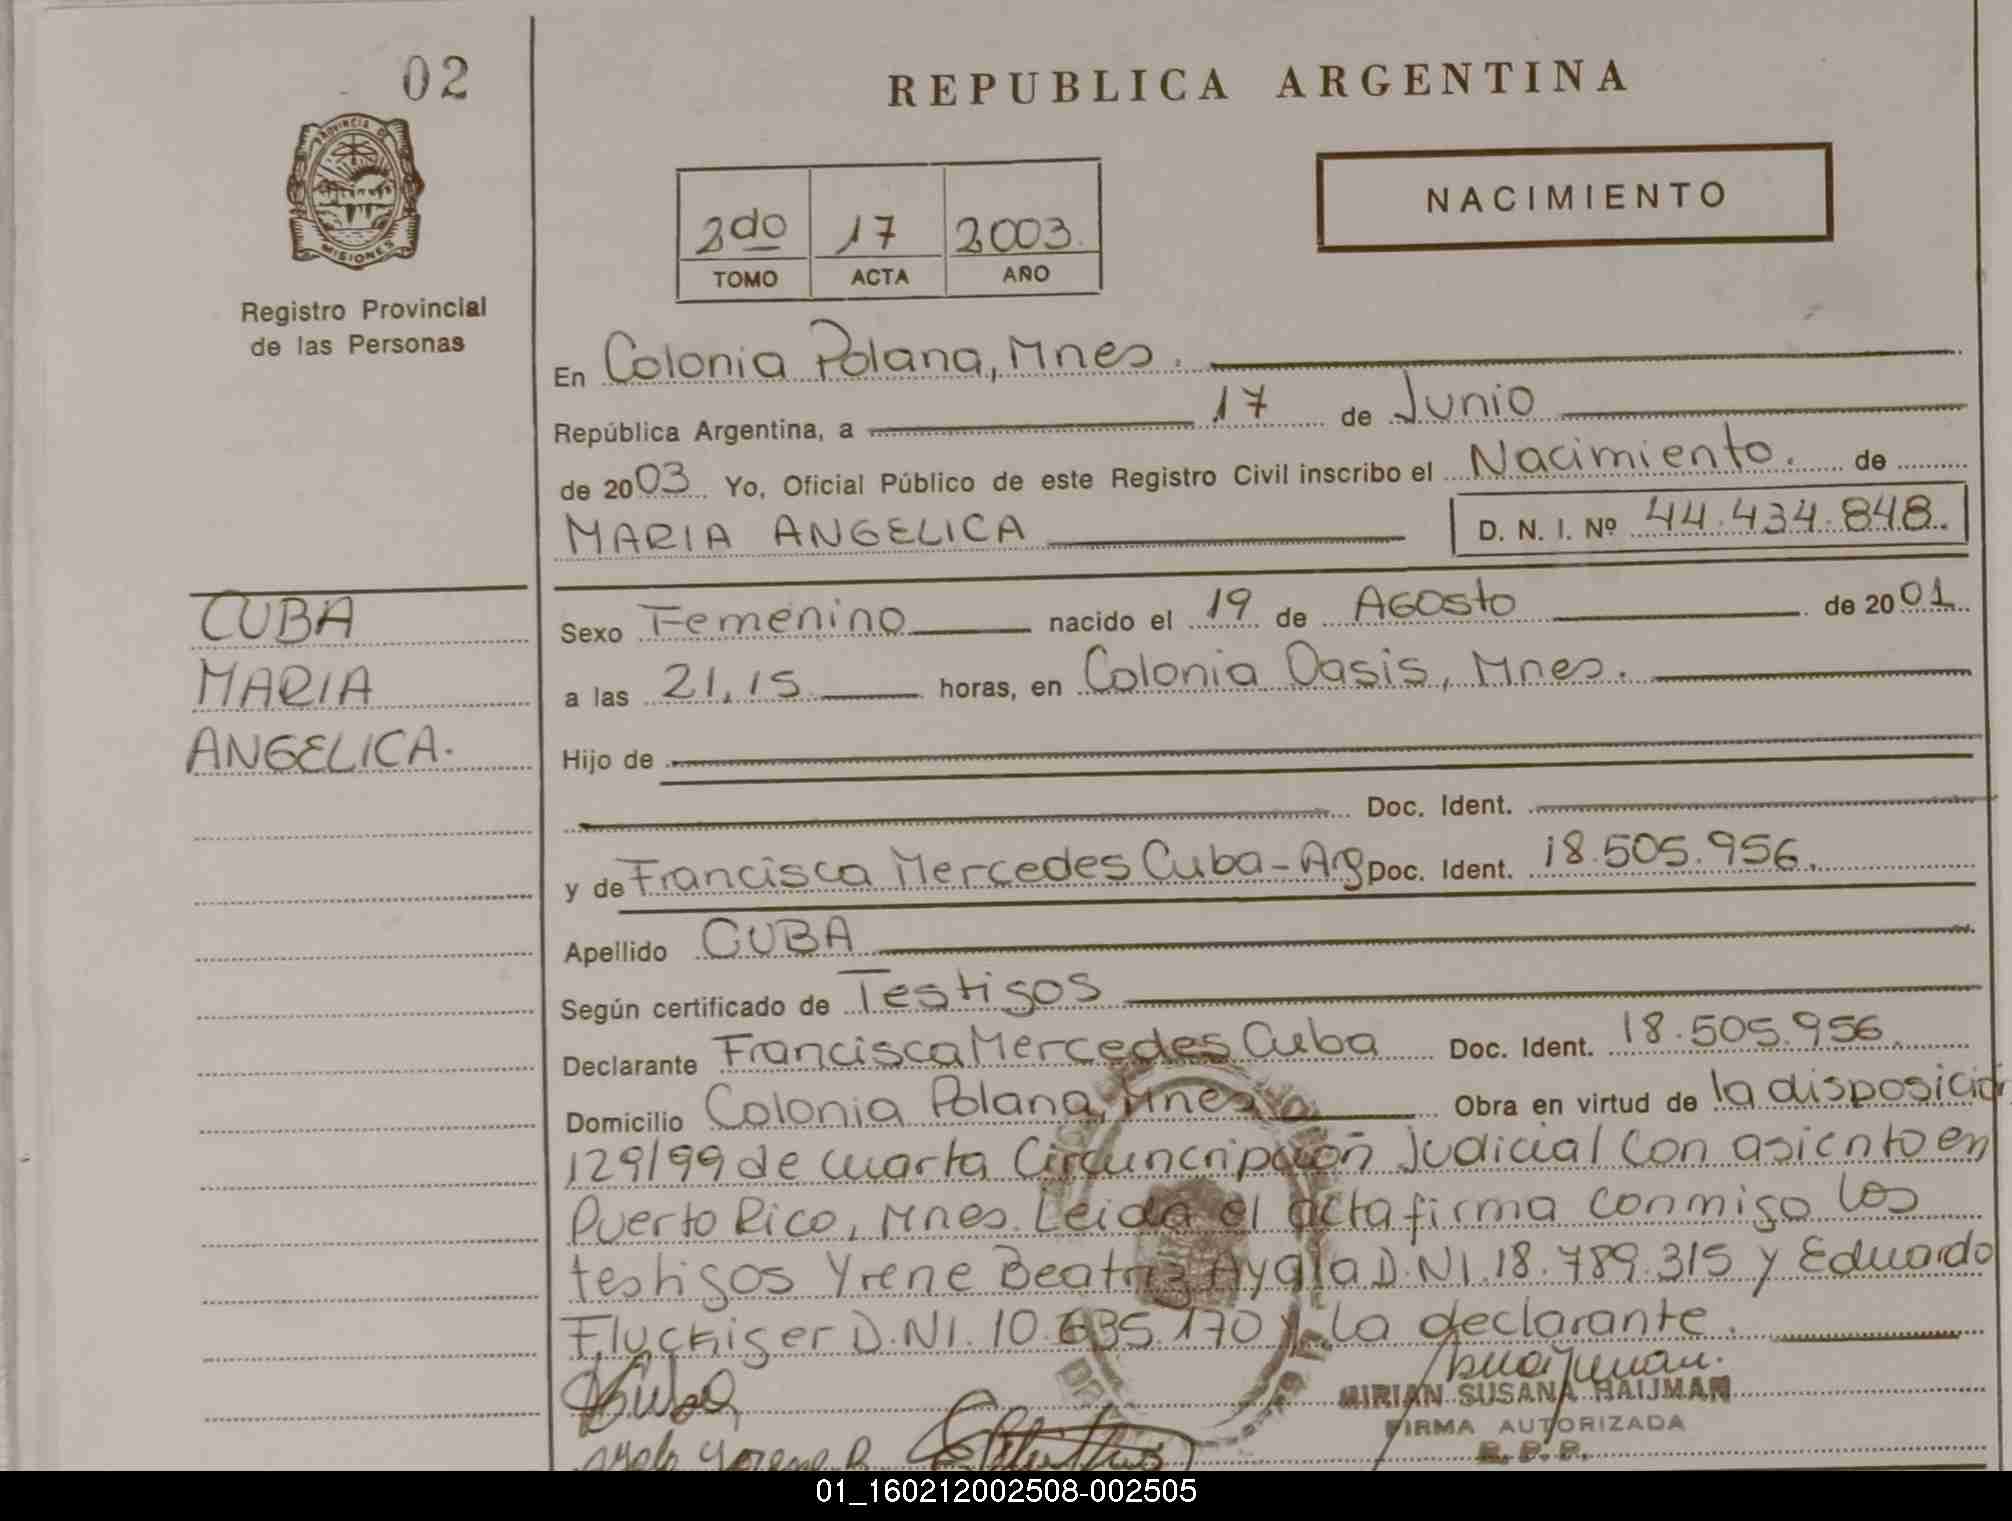 02
REPUBLICA ARGENTINA
PROVINCIA DE
MISIONES
NACIMIENTO
2do 17 2003.
TOMO ACTA AÑO
Registro Provincial
de las Personas
En Colonia Polana, Mnes.
República Argentina, a 17 de Junio
de 2003 Yo, Oficial Público de este Registro Civil inscribo el Nacimiento. de
MARIA ANGELICA D. N. I. Nº 44.434.848.
CUBA
MARIA
ANGELICA.
Sexo Femenino nacido el 19 de Agosto de 2001
a las 21,15 horas, en Colonia Oasis, Mnes.
Hijo de
Doc. Ident.
y de Francisca Mercedes Cuba - Arg Doc. Ident. 18.505.956.
Apellido CUBA
Según certificado de Testigos
Declarante Francisca Mercedes Cuba Doc. Ident. 18.505.956
Domicilio Colonia Polana, Mnes Obra en virtud de la disposición
129/99 de cuarta Circuncripción Judicial con asiento en
Puerto Rico, Mnes. Leida el acta firma conmigo los
testigos Yrene Beatriz Ayala D.NI.18.789.315 y Eduardo
Fluckiger D.NI. 10.635.170 y la declarante.
MIRIAN SUSANA HAIJMAN
FIRMA AUTORIZADA
R.P.P.
01_160212002508-002505